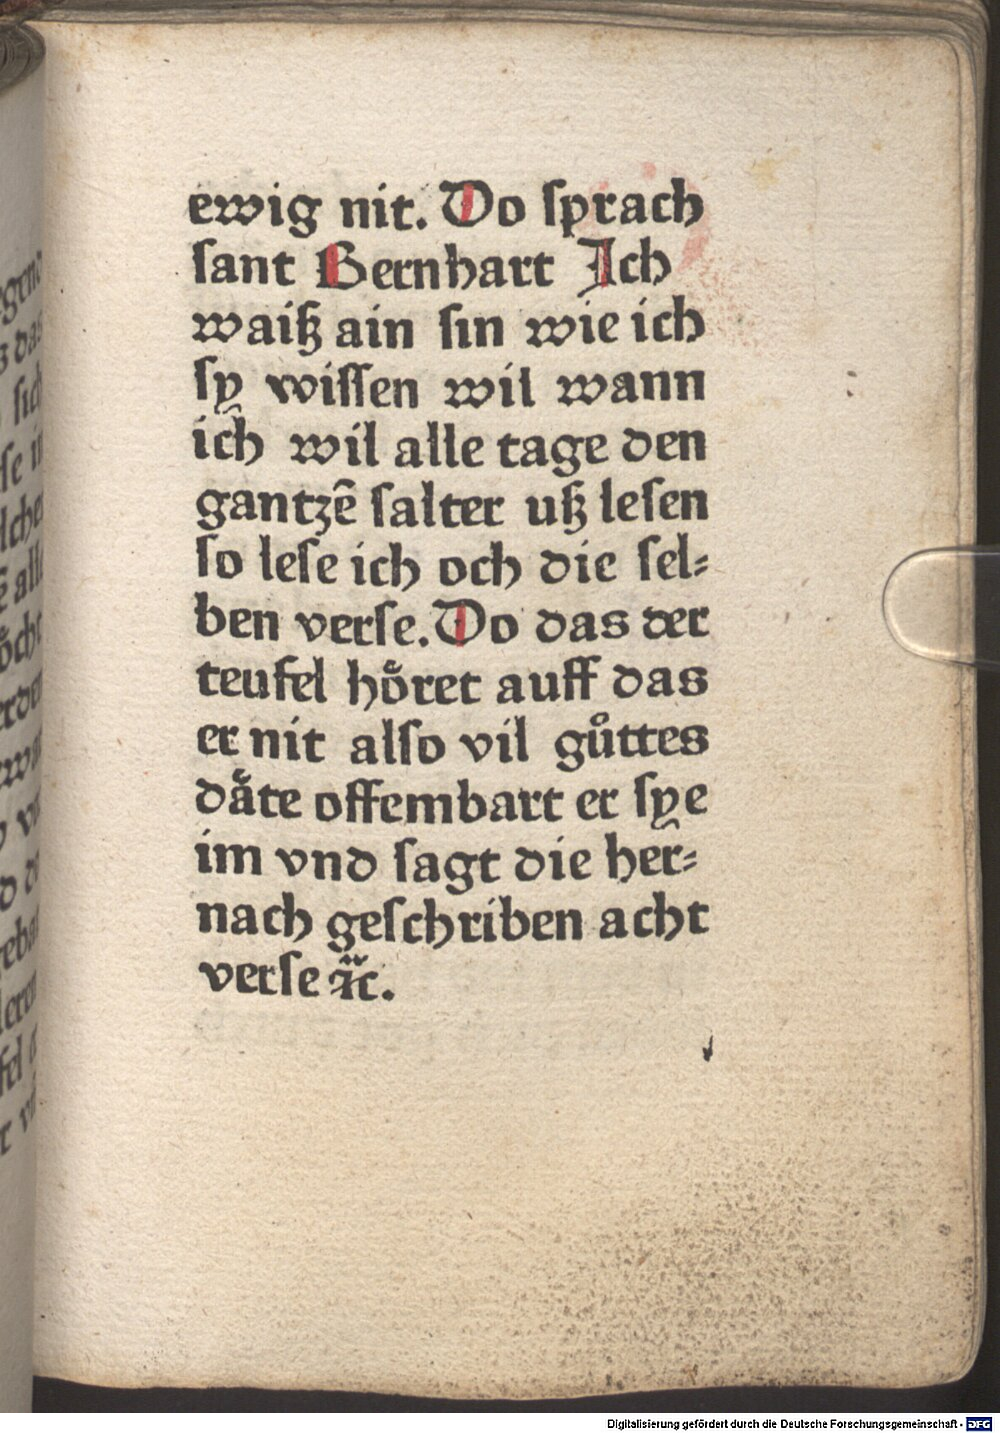 ewig nit. Do ſprach
ſant Bernhart Ich
waiß ain ſin wie ich
ſy wiſſen wil wann
ich wil alle tage den
gantzē ſalter uß leſen
ſo leſe ich och die ſel⸗
ben verſe. Do das der
teufel hoͤret auff das
er nit alſo vil guͦttes
daͤte offembart er ſye
im vnd ſagt die her⸗
nach geſchriben acht
verſe ꝛc̃.
Digitalisierung gefördert durch die Deutsche Forschungsgemeinschaft - DFG